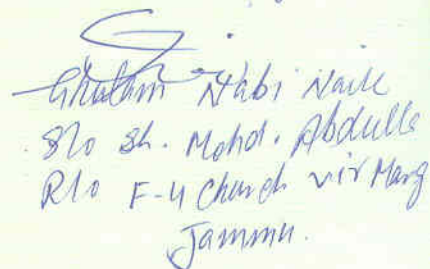 Ghulam Nabi Naik
S/o Sh. Mohd. Abdulla
R/o F-4 Church vir Marg
Jammu.